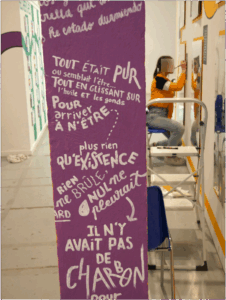 rella que
He estado durmiendo
TOUT ÉTAIT PUR
ou semblait l'être
TOUT EN GLISSANT SUR
l'huile et les gonds
POUR
arriver
À N'ÊTRE
plus rien
QU'EXISTENCE
RIEN
ne BRÛLE
NUL ne
pleurait
IL N'Y
AVAIT PAS
DE
CHARBON
pour